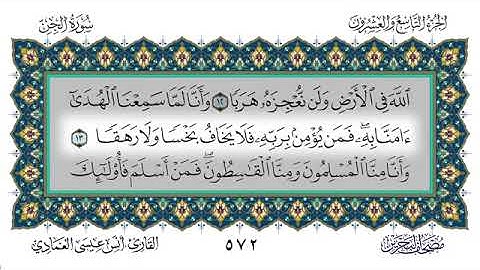 الجزء التاسع والعشرون
سورة الجن
اللَّهَ فِي الْأَرْضِ وَلَن نُّعْجِزَهُۥ هَرَبًا ١٢ وَأَنَّا لَمَّا سَمِعْنَا الْهُدَىٰٓ
ءَامَنَّا بِهِۦ ۖ فَمَن يُؤْمِنۢ بِرَبِّهِۦ فَلَا يَخَافُ بَخْسًا وَلَا رَهَقًا ١٣
وَأَنَّا مِنَّا الْمُسْلِمُونَ وَمِنَّا الْقَاسِطُونَ ۖ فَمَنْ أَسْلَمَ فَأُو۟لَٰٓئِكَ
مصحف البحرين
٥٧٢
القارئ أنس عيسى العمادي